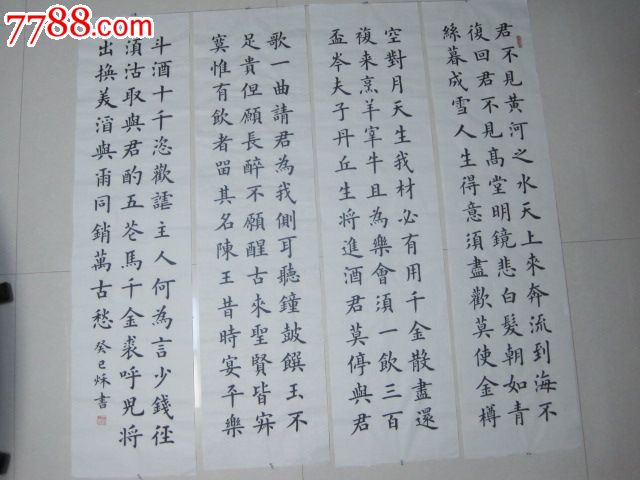 7788.com
君不見黃河之水天上來奔流到海不
復回君不見髙堂明鏡悲白髮朝如青
絲暮成雪人生得意須盡歡莫使金樽
空對月天生我材必有用千金散盡還
複来烹羊宰牛且為樂會須一飲三百
盃岑夫子丹丘生将進酒君莫停與君
歌一曲請君為我側耳聽鐘皷饌玉不
足貴但願長醉不願醒古來聖賢皆寂
寞惟有飲者畱其名陳王昔時宴平樂
斗酒十千恣歡謔主人何為言少錢徑
須沽取與君酌五花馬千金裘呼児将
出換美酒與爾同銷萬古愁癸巳秌書